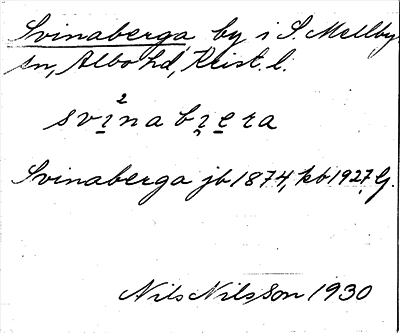 Svinaberga, by i S. Mellby
sn, Albo hd, Krist. l.
svı̱²nabı̣e̱ra
Svinaberga jb 1874, kb 1927. G.
Nils Nilsson 1930